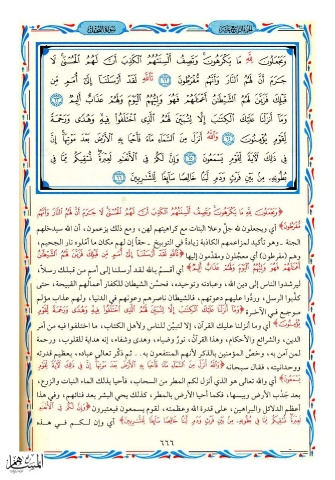 وَيَجْعَلُونَ لِلَّهِ مَا يَكْرَهُونَ وَتَصِفُ أَلْسِنَتُهُمُ الْكَذِبَ أَنَّ لَهُمُ الْحُسْنَىٰ لَا
جَرَمَ أَنَّ لَهُمُ النَّارَ وَأَنَّهُم مُّفْرَطُونَ ٦٢ تَاللَّهِ لَقَدْ أَرْسَلْنَا إِلَىٰ أُمَمٍ مِّن
قَبْلِكَ فَزَيَّنَ لَهُمُ الشَّيْطَانُ أَعْمَالَهُمْ فَهُوَ وَلِيُّهُمُ الْيَوْمَ وَلَهُمْ عَذَابٌ أَلِيمٌ ٦٣
وَمَا أَنزَلْنَا عَلَيْكَ الْكِتَابَ إِلَّا لِتُبَيِّنَ لَهُمُ الَّذِي اخْتَلَفُوا فِيهِ وَهُدًى وَرَحْمَةً
لِّقَوْمٍ يُؤْمِنُونَ ٦٤ وَاللَّهُ أَنزَلَ مِنَ السَّمَاءِ مَاءً فَأَحْيَا بِهِ الْأَرْضَ بَعْدَ مَوْتِهَا إِنَّ
فِي ذَٰلِكَ لَآيَةً لِّقَوْمٍ يَسْمَعُونَ ٦٥ وَإِنَّ لَكُمْ فِي الْأَنْعَامِ لَعِبْرَةً نُّسْقِيكُم مِّمَّا فِي
بُطُونِهِ مِن بَيْنِ فَرْثٍ وَدَمٍ لَّبَنًا خَالِصًا سَائِغًا لِّلشَّارِبِينَ ٦٦
﴿وَيَجْعَلُونَ لِلَّهِ مَا يَكْرَهُونَ وَتَصِفُ أَلْسِنَتُهُمُ الْكَذِبَ أَنَّ لَهُمُ الْحُسْنَىٰ لَا جَرَمَ أَنَّ لَهُمُ النَّارَ وَأَنَّهُم
مُّفْرَطُونَ﴾ أي ويجعلون لله جلَّ وعلا البنات مع كراهيتهم لهن، ومع ذلك يزعمون، أن الله سيدخلهم
الجنة ـ وهو تأكيد لمزاعمهم الكاذبة زيادةً في التوبيخ ـ حقاً إن لهم مكان ما أمَّلوه نار الجحيم،
وهم (مفرطون) أي معجَّلون ومقدَّمون إليها ﴿تَاللَّهِ لَقَدْ أَرْسَلْنَا إِلَىٰ أُمَمٍ مِّن قَبْلِكَ فَزَيَّنَ لَهُمُ الشَّيْطَانُ
أَعْمَالَهُمْ فَهُوَ وَلِيُّهُمُ الْيَوْمَ وَلَهُمْ عَذَابٌ أَلِيمٌ﴾ أي أقسمُ بالله لقد أرسلنا إلى أمم من قبلك رسلاً،
ليرشدوا الناس إلى دين الله، وعبادته وتوحيده، فحسَّن الشيطان للكفار أعمالهم القبيحة، حتى
كذَّبوا الرسل، وردُّوا عليهم دعوتهم، فالشيطان ناصرهم وعونهم في الدنيا، ولهم عذاب مؤلم
موجع في الآخرة ﴿وَمَا أَنزَلْنَا عَلَيْكَ الْكِتَابَ إِلَّا لِتُبَيِّنَ لَهُمُ الَّذِي اخْتَلَفُوا فِيهِ وَهُدًى وَرَحْمَةً لِّقَوْمٍ
يُؤْمِنُونَ﴾ أي وما أنزلنا عليك القرآن، إلا لتبيِّن للناس ولأهل الكتاب، ما اختلفوا فيه من أمر
الدين، والشرائع والأحكام، وهذا القرآن، نورٌ وضياء، وهدى وشفاء، إنه هداية للقلوب، ورحمة
لمن آمن به، وخصَّ المؤمنين بالذكر لأنهم المنتفعون به.. ثم ذكَّر تعالى عباده، بعظيم قدرته
ووحدانيته، فقال سبحانه ﴿وَاللَّهُ أَنزَلَ مِنَ السَّمَاءِ مَاءً فَأَحْيَا بِهِ الْأَرْضَ بَعْدَ مَوْتِهَا إِنَّ فِي ذَٰلِكَ لَآيَةً لِّقَوْمٍ
يَسْمَعُونَ﴾ أي والله تعالى هو الذي أنزل لكم المطر من السحاب، فأحيا بذلك الماء، النبات والزرع،
بعد جَدْب الأرض ويبسها، فكما أحيا الأرض بالمطر، كذلك يحي البشر بعد فنائهم، وفي هذا
أعظم الدلائل والبراهين، على قدرة الله وعظمته، لقوم يسمعون فيعتبرون ﴿وَإِنَّ لَكُمْ فِي الْأَنْعَامِ
لَعِبْرَةً نُّسْقِيكُم مِّمَّا فِي بُطُونِهِ مِن بَيْنِ فَرْثٍ وَدَمٍ لَّبَنًا خَالِصًا سَائِغًا لِّلشَّارِبِينَ﴾ أي وإن لكم في هذه
٦٦٦